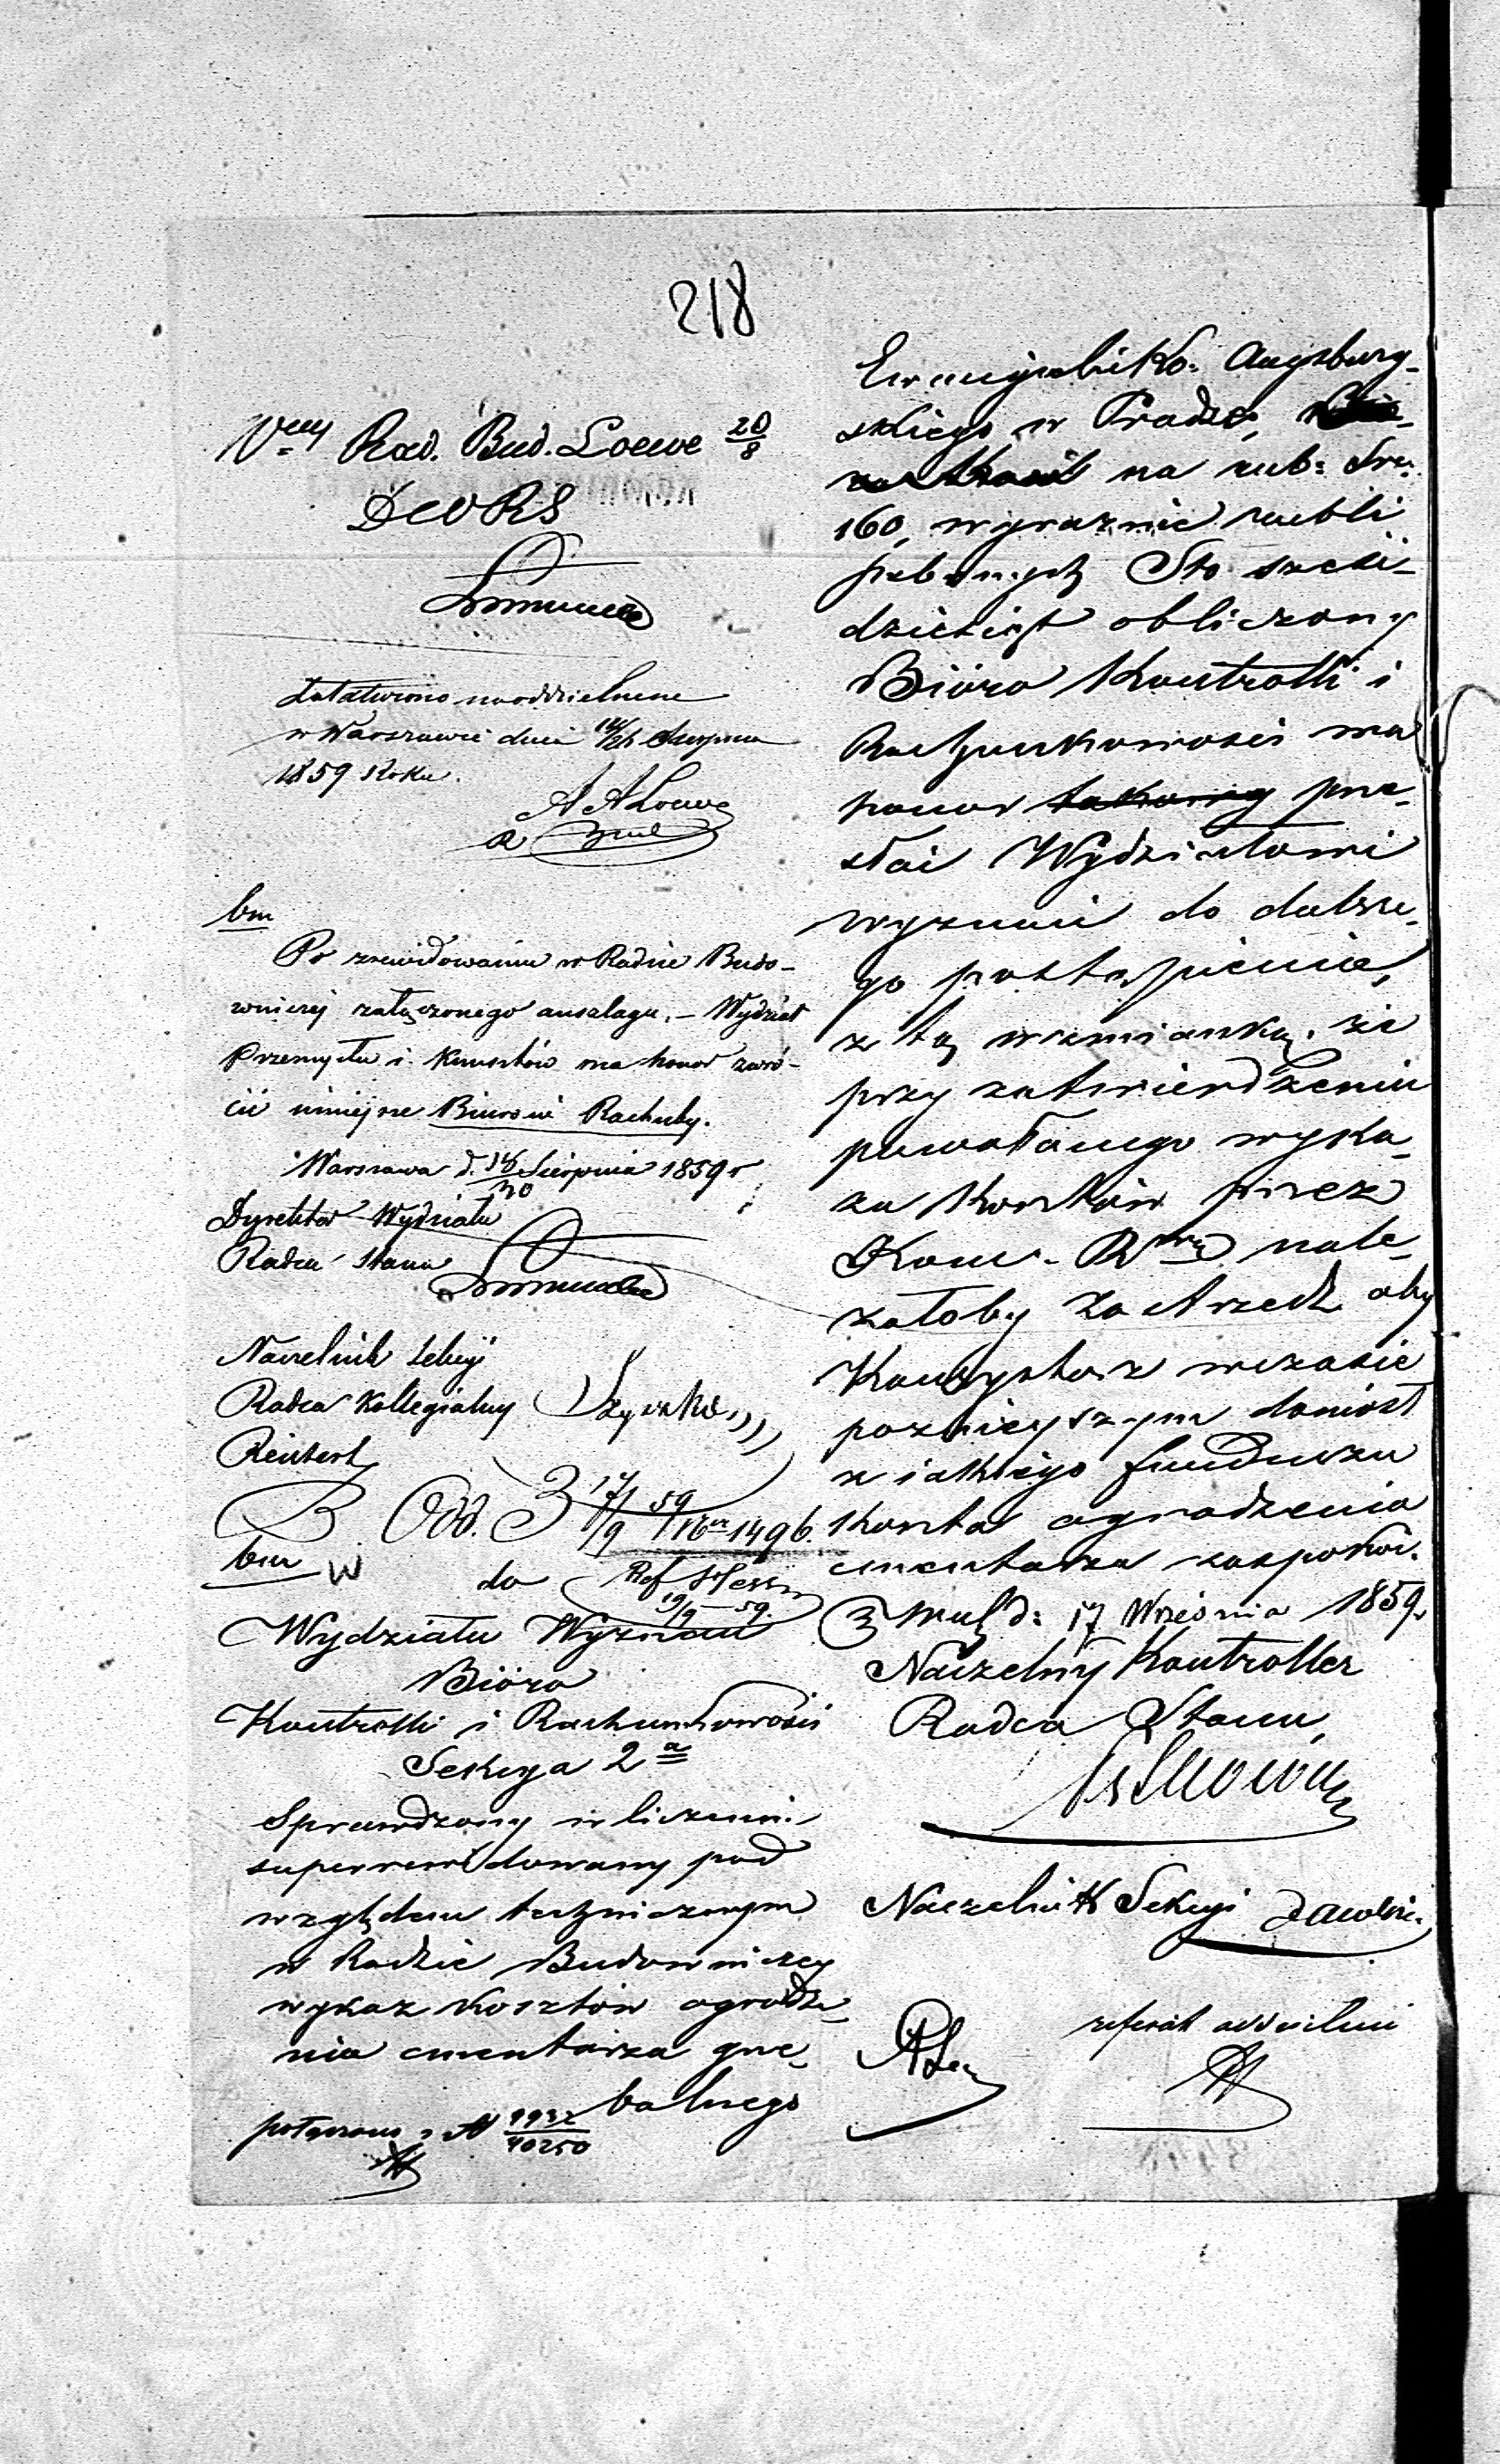 218
Rad. Bud. Loewe 20/8
DWPRS
Załatwiono na oddzielnem
w Warszawie dnia 14/26 Sierpnia
1859 Roku.
A A Loewe
bm
Po zrewidowaniu w Radzie Budo-
wniczej załączonego anszlagu, – Wydział
Przemysłu i Kunsztów ma honor zwró-
cić niniejsze Biurowi Rachuby.
Warszawa d. 18/30 Sierpnia 1859 r
Dyrektor Wydziału
Radca Stanu
Naczelnik Sekcyi
Radca Kollegialny
Reichert
Odd. 3 17/9 59 1496.
bm
do Ref Hess
19/9 59.
Wydziału Wyznań
Bióro
Kontrolli i Rachunkowości
Sekcya 2a
Sprawdzony w liczeniu i
superrewidowany pod
względem technicznym
w Radzie Budowniczej
wykaz kosztów ogrodze-
nia cmentarza grze-
balnego
połączono z N 9932/40250
Ewangelicko: Augsburg-
skiego w
na rub: Sr:
160, wyraźnie rubli
srebrnych Sto sześć-
dziesiąt obliczony
Bióro Kontrolli i
Rachunkowości ma
honor takowy prze-
słać Wydziałowi
wyznań do dalsze-
go postąpienia,
z tą wzmianką, że
przy zatwierdzeniu
powołanego wyka-
zu kosztów przez
Kom. Rwą nale-
żałoby zastrzedz aby
Konsystorz w czasie
poźniejszym doniósł
z jakiego funduszu
koszta ogrodzenia
cmentarza zaspokoi.
d: 17 Września 1859 r
Naczelny Kontroller
Radca Stanu,
Naczelnik Sekcyi
referat oddzielny